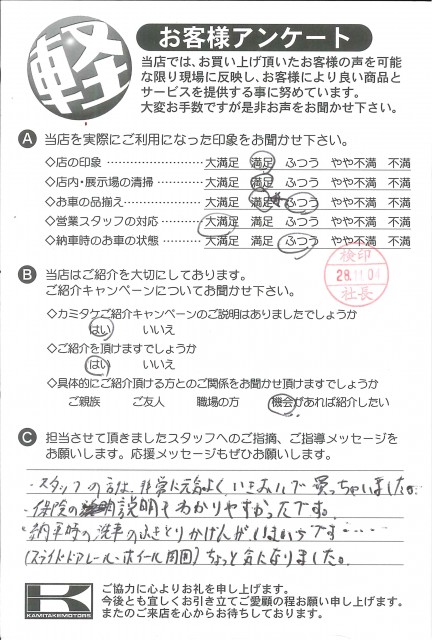 軽
お客様アンケート
当店では、お買い上げ頂いたお客様の声を可能
な限り現場に反映し、お客様により良い商品と
サービスを提供する事に努めています。
大変お手数ですが是非お声をお聞かせ下さい。
A 当店を実際にご利用になった印象をお聞かせ下さい。
◇店の印象 大満足 満足 ふつう やや不満 不満
◇店内・展示場の清掃 大満足 満足 ふつう やや不満 不満
◇お車の品揃え 大満足 満足 ふつう やや不満 不満
◇営業スタッフの対応 大満足 満足 ふつう やや不満 不満
◇納車時のお車の状態 大満足 満足 ふつう やや不満 不満
検印
28.11.04
社長
B 当店はご紹介を大切にしております。
ご紹介キャンペーンについてお聞かせ下さい。
◇カミタケご紹介キャンペーンのご説明はありましたでしょうか
はい いいえ
◇ご紹介を頂けますでしょうか
はい いいえ
◇具体的にご紹介頂ける方とのご関係をお聞かせ頂けますでしょうか
ご親族 ご友人 職場の方 機会があれば紹介したい
C 担当させて頂きましたスタッフへのご指摘、ご指導メッセージを
お願いします。応援メッセージもぜひお願いします。
・スタッフの方は、非常に元気よく、いきおいで買っちゃいました。
・保険の説明もわかりやすかったです。
・納車時の洗車のふきとりかげんが、いまいちです・・・・
(スライドドアレール・ホイール周囲)ちょっと気になりました。
K
KAMITAKEMOTORS
ご協力に心よりお礼を申し上げます。
今後とも宜しくお引き立てご愛顧の程お願い申し上げます。
またのご来店を心からお待ちしております。